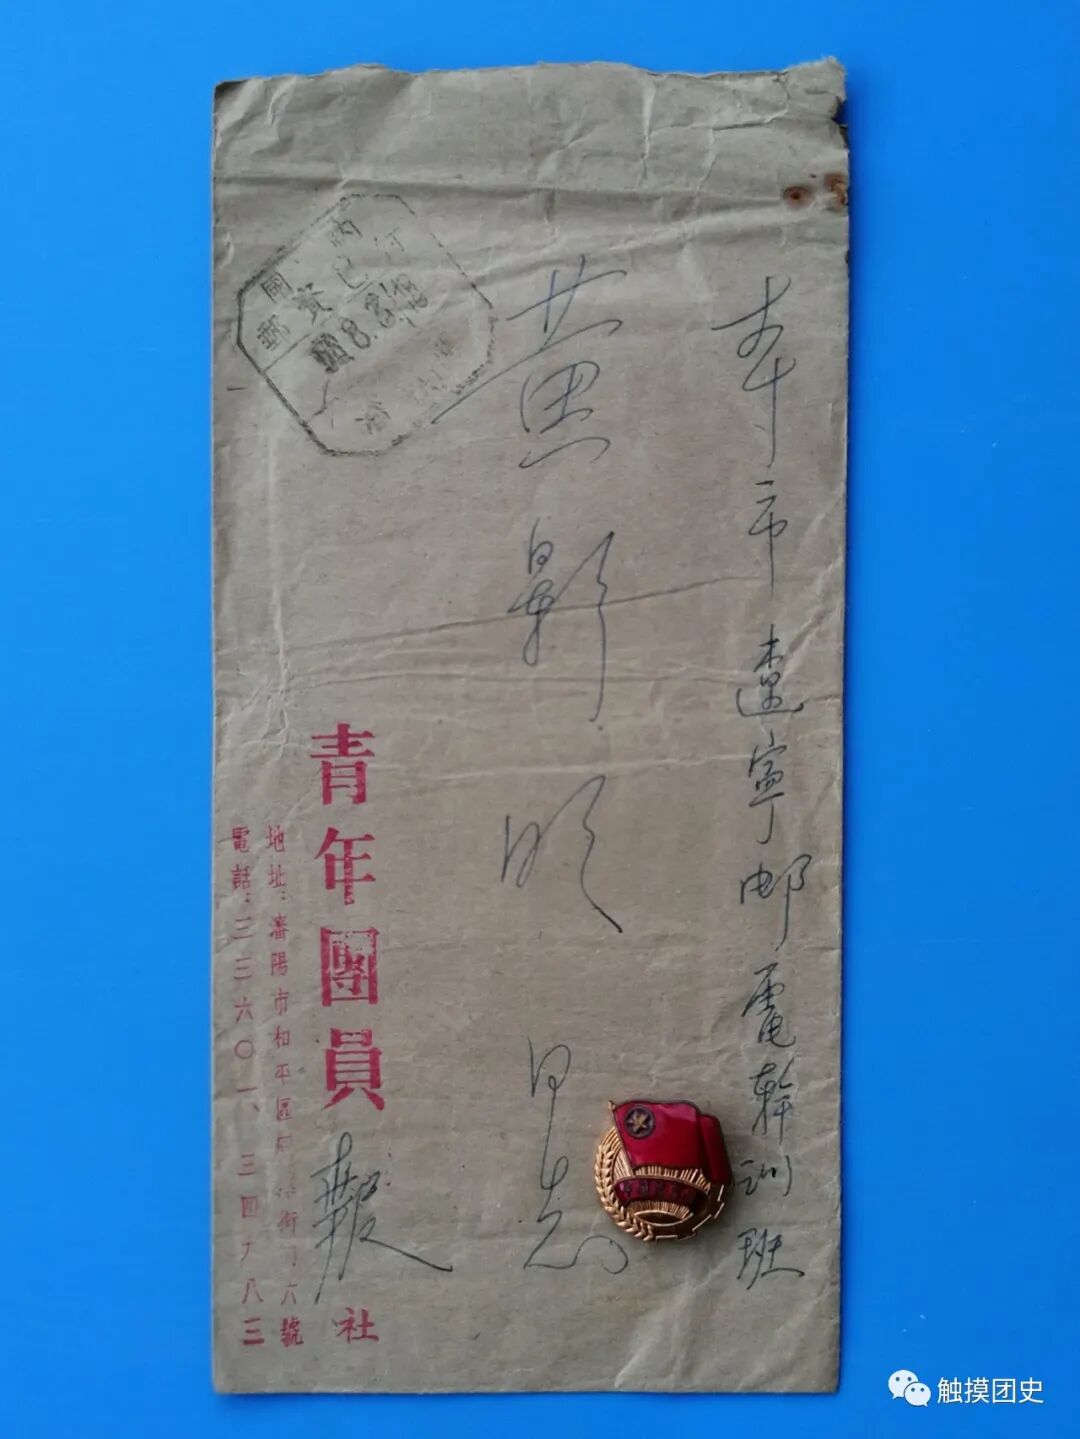 本市遼寧邮電幹训班
黄影明
同志
國内
郵資已付
瀋陽
青年團員報社
地址：瀋陽市和平區
街
六號
電話：三三六〇一、三四
八三
触摸团史